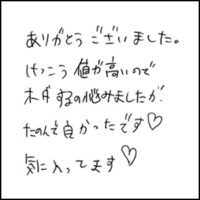 ありがとう ございました。
けっこう 値が高いので
木ダするの悩みましたが、
たのんで良かったです♡
気に入ってます♡